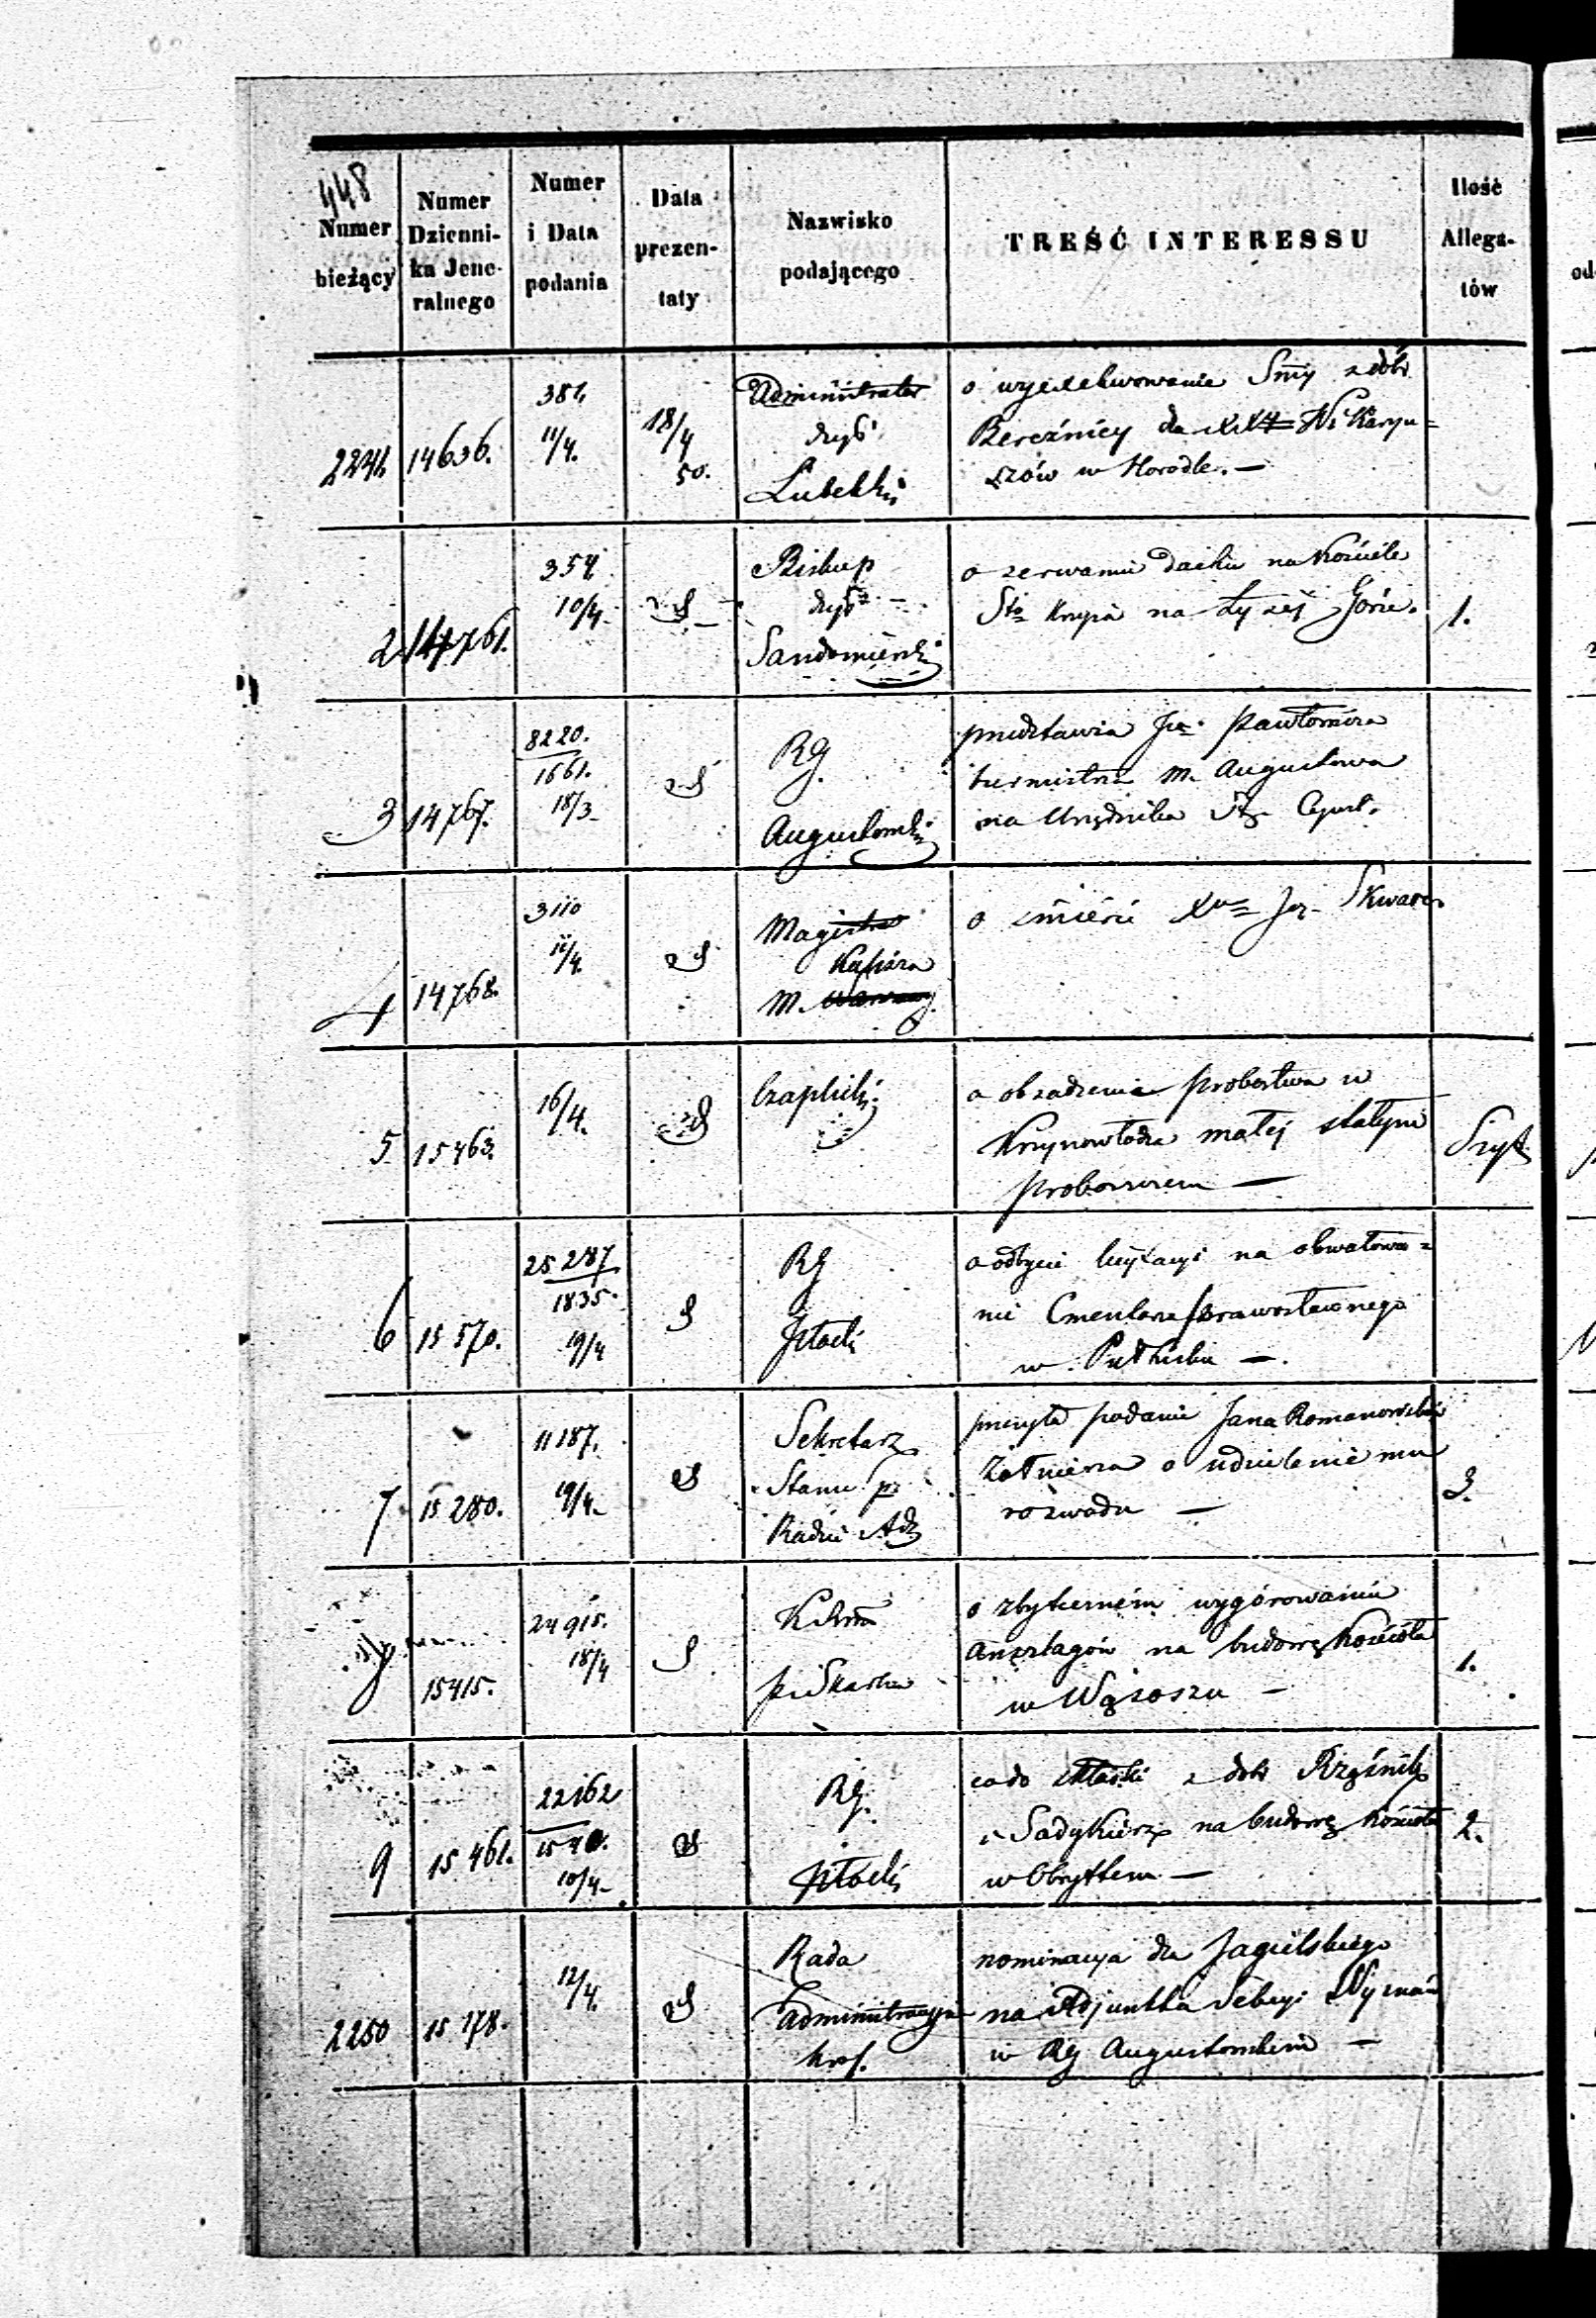 448
Numer bieżący
Numer Dzienni-ka Jene-ralnego
Numer i Data podania
Data prezen-taty
Nazwisko podającego
TREŚĆ INTERESSU
Ilość Allega-tów
2241. 14636. 381. 11/4. 18/4 50. Administrator dyć. Lubelski
o wyexekwowanie Smy z dóbr
Bereźnicy dla XX Wikaryu=
szów w Horodle. —
2 14761. 354 10/4. Biskup dyć. Sandomierski
o zerwaniu dachu na Kościele
Sto Krzyża na Łysej Górze. 1.
3 14767. 8220. 1661. 18/3. RG. Augustowski
przedstawia Pawłowicza
burmistrza M. Augustowa
na Urzędnika
4 14768. 3110 11/4. Magistrat M. Warszawy
o śmierci Xa Skwara
5 15463. 16/4. Czaplicki
o obsadzenie probostwa w
Krzynowłodze małej stałym
proboszczem — Szyt
6 15570. 25287 1835. 19/4 RG Płocki
o odbyciu licytacyi na obwałowa=
nie Cmentarza prawosławnego
w Pułtusku —.
7 15280. 11187. 19/4. Sekretarz Stanu pr Radzie Adm
przesyła podanie Jana Romanowskiego
Żołnierza o udzielenie mu
rozwodu — 3.
8 15415. 24915. 18/4 Skarbu
o zbytecznem wygórowaniu
anszlagów na budowę Kościoła
w Wąsoszu — 1.
9 15461. 22162 1540. 10/4. RG. Płocki
co do składki z dóbr Rząśnik
i Sadykierz na budowę Kościoła
w Obrytem — 2.
2250 15178. 12/4. Rada Administracyjna Król.
nominacya dla Jagielskiego
na Adjunkta Sekcyi Wyznań
w RG Augustowskim —